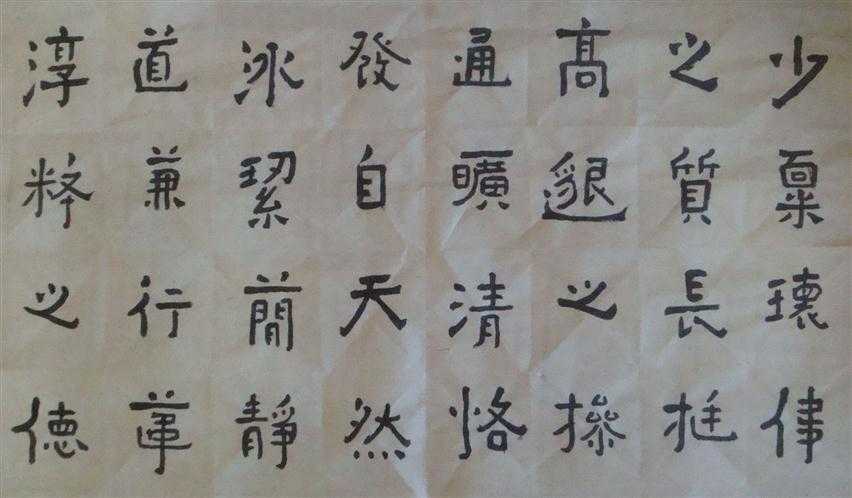 少稟瓌偉
之質長挺
髙邈之操
通曠清恪
發自天然
冰絜簡靜
道兼行葦
淳粹之德